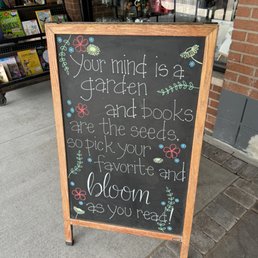 your mind is a
garden
and books
are the seeds.
so pick your
favorite and
bloom
as you read!